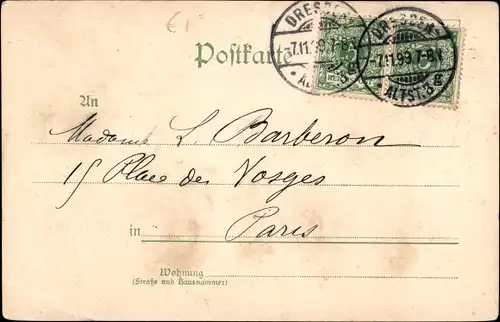 €1
Postkarte
DRESDEN
-7.11.99.7-8V.
* ALTST. 3 g
DRESDEN
-7.11.99.7-8V.
* ALTST. 3 g
An
Madame L. Barberon
15 Place des Vosges
in Paris
Wohnung
(Straße und Hausnummer)